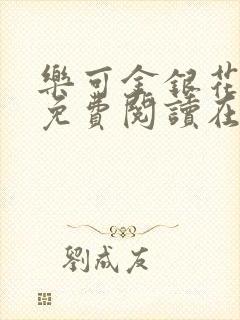 樂可金銀花
免費閱讀在
劉成友